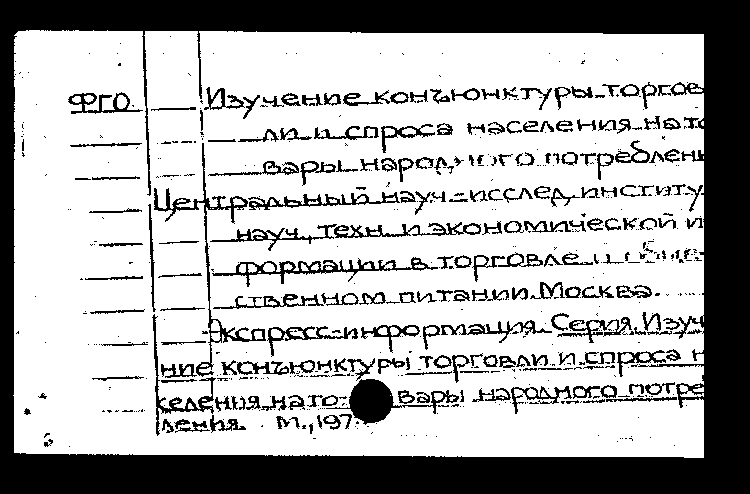 ФГО Изучение конъюнктуры торгов
ли и спроса населения на то
вары народного потреблен
Центральный науч.-исслед. институ
науч., техн. и экономической и
формации в торговле и обще-
ственном питании. Москва.
Экспресс-информация. Серия. Изуч
ние конъюнктуры торговли и спроса н
селения на то- вары народного потре
ления. М., 197